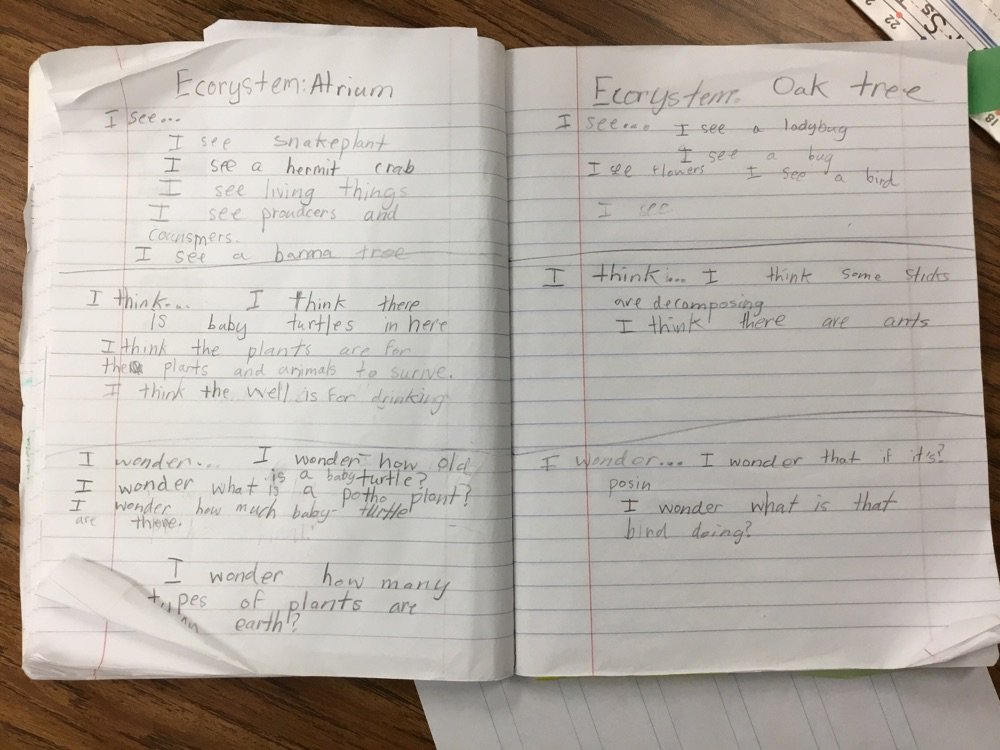 Ecorystem: Atrium
I see...
I see snakeplant
I see a hermit crab
I see living things
I see proudcers and
counsmers.
I see a banna tree
I think... I think there
is baby turtles in here
I think the plants are for
the plants and animals to surive.
I think the well is for drinking
I wonder... I wonder how old
is a baby turtle?
I wonder what is a potho plant?
I wonder how much baby turtle
are there.
I wonder how many
types of plants are
earth?
Ecorystem: Oak tree
I see... I see a ladybug
I see a bug
I see flowers I see a bird
I see
I think... I think some sticks
are decomposing
I think there are ants
I wonder... I wonder that if it's?
posin
I wonder what is that
bird doing?
22
Ss
18